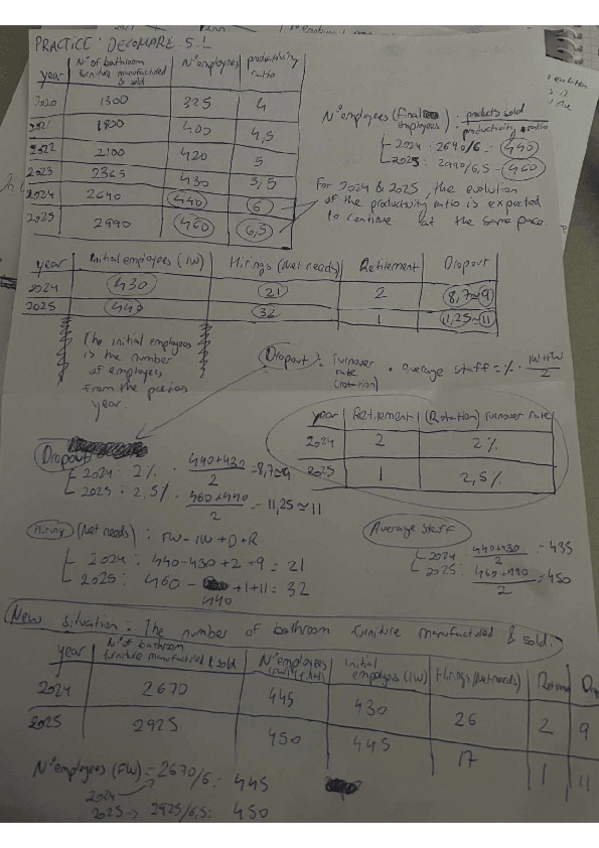 PRACTICE: DECOMARE S.L
year | Nº of bathroom furniture manufactured & sold | Nº employees | productivity ratio
2020 | 1300 | 325 | 4
2021 | 1800 | 400 | 4,5
2022 | 2100 | 420 | 5
2023 | 2365 | 430 | 5,5
2024 | 2640 | 440 | 6
2025 | 2990 | 460 | 6,5
Nº employees (final employees) : products sold / productivity ratio
2024 : 2640/6 = 440
2025 : 2990/6,5 = 460
For 2024 & 2025, the evolution
of the productivity ratio is expected
to continue at the same pace.
year | Initial employees (IW) | Hirings (Net needs) | Retirement | Dropout
2024 | 430 | 21 | 2 | 8,7≈9
2025 | 440 | 32 | 1 | 11,25≈11
The initial employees
is the number
of employees
from the previous
year.
Dropout : Turnover rate (rotation) · average staff = % · IW+FW / 2
year | Retirement | (Rotation) Turnover rate
2024 | 2 | 2%
2025 | 1 | 2,5%
Dropout
2024 : 2% · 440+430 / 2 = 8,7≈9
2025 : 2,5% · 460+440 / 2 = 11,25≈11
Hiring (Net needs) : FW-IW+D+R
2024 : 440-430+2+9 = 21
2025 : 460- 440 +1+11 = 32
Average Staff
2024 : 440+430 / 2 = 435
2025 : 460+440 / 2 = 450
New Situation : The number of bathroom furniture manufactured & sold.
year | Nº of bathroom furniture manufactured & sold | Nº employees | Initial employees (IW) | Hirings (Net needs)
2024 | 2670 | 445 | 430 | 26 | 2 | 9
2025 | 2925 | 450 | 445 | 17 | 1 | 11
Nº employees (FW) = 2670/6 = 445
2024
2025 → 2925/6,5 = 450